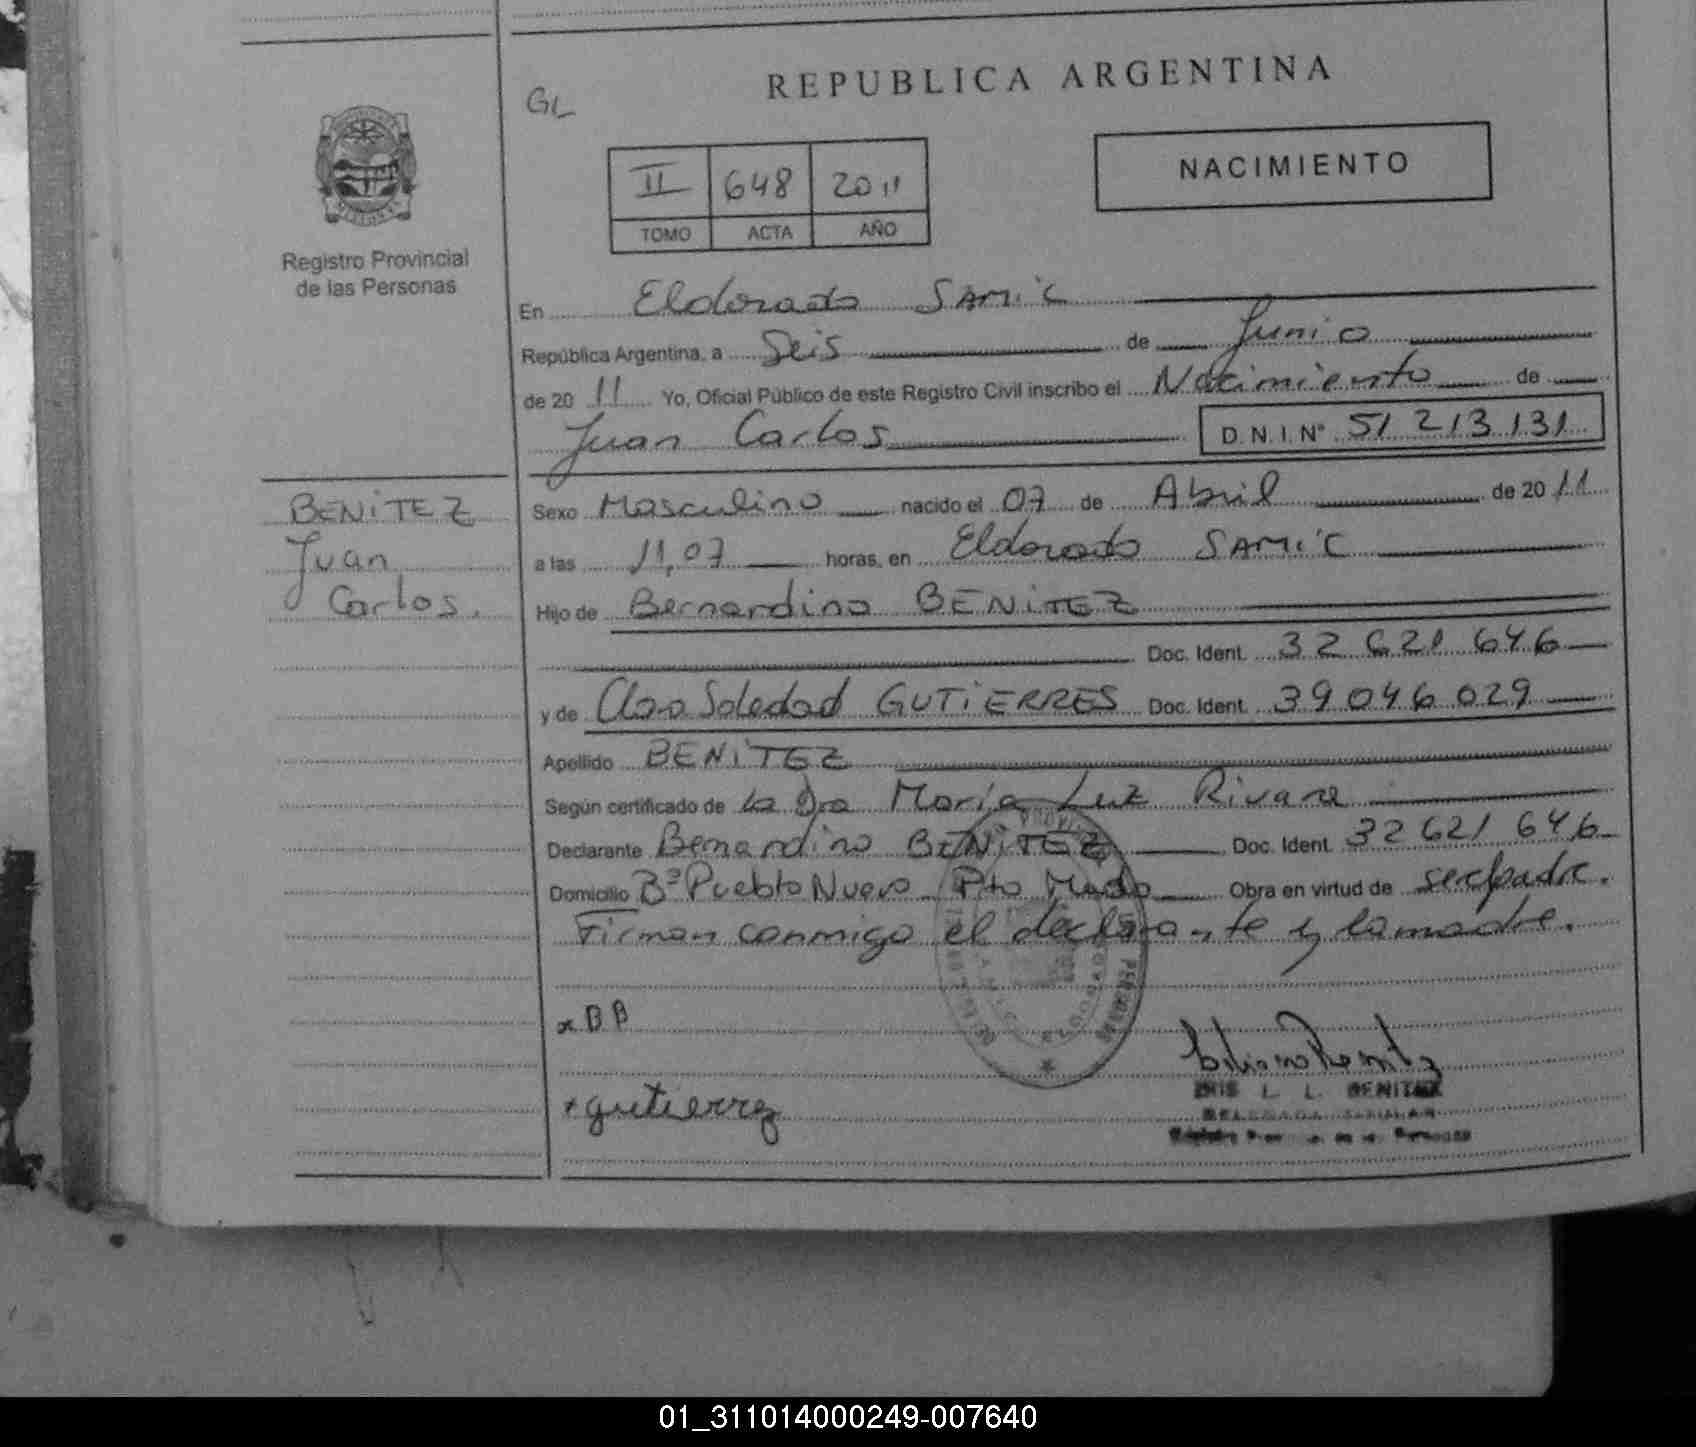 REPUBLICA ARGENTINA
GL
NACIMIENTO
II 648 2011
TOMO ACTA AÑO
Registro Provincial
de las Personas
En Eldorado SAMiC
República Argentina, a Seis de Junio
de 20 11 Yo, Oficial Público de este Registro Civil inscribo el Nacimiento de
Juan Carlos D.N.I. Nº 51 213 131
BENITEZ
Juan
Carlos.
Sexo Masculino nacido el 07 de Abril de 20 11
a las 11,07 horas, en Eldorado SAMiC
Hijo de Bernardino BENITEZ
Doc. Ident. 32 621 646
y de Clara Soledad GUTIERRES Doc. Ident. 39 046 029
Apellido BENITEZ
Según certificado de la Dra María Luz Rivare
Declarante Bernardino BENITEZ Doc. Ident. 32 621 646
Domicilio Bº Pueblo Nuevo Pto Mado Obra en virtud de ser padre.
Firman conmigo el declarante y la madre.
x B B
+ gutierrez
L. L. BENITEZ
01_311014000249-007640